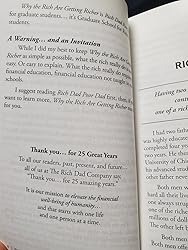 Why the Rich Are Getting Richer is Rich Dad
graduate students... it's Graduate School for
students.
A Warning... and an Invitation
While I did my best to keep Why the Rich Are Getting
Richer as simple as possible, what the rich really do
easy. Or easy to explain. What the rich really do
financial education, financial education not taught in
schools.
I suggest reading Rich Dad Poor Dad first, then, if
want to learn more, Why the Rich Are Getting Richer
you.
Thank you... for 25 Great Years
To all our readers, past, present, and future...
all of us at The Rich Dad Company say,
"Thank you... for 25 amazing years."
It is our mission to elevate the financial
well-being of humanity...
and that starts with one life
and one person at a time.
RIC
Having two
cont
one of a rich
I had two fath
was highly educ
completed four
years. He then w
University of C
to do his advan
Dollar. The othe
Both men w
lives. Both earn
Both men w